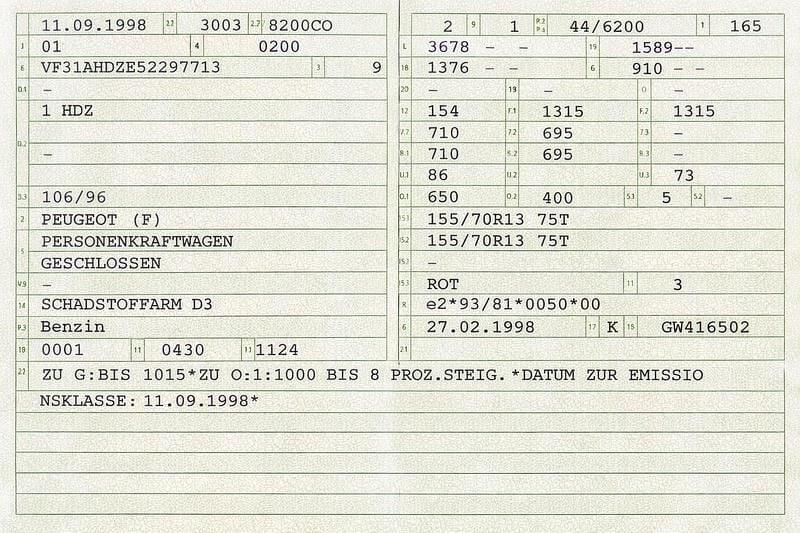 11.09.1998 2.2 3003 2.2/ 8200CO
J 01 4 0200
E VF31AHDZE52297713 3 9
D.1 –
1 HDZ
D.2
–
3.3 106/96
2 PEUGEOT (F)
PERSONENKRAFTWAGEN
5
GESCHLOSSEN
V.9 –
14 SCHADSTOFFARM D3
P.3 Benzin
10 0001 11 0430 11 1124
22 ZU G:BIS 1015*ZU O:1:1000 BIS 8 PROZ.STEIG. *DATUM ZUR EMISSIO
NSKLASSE: 11.09.1998*
L 2 9 1 P.2 P.4 44/6200 T 165
3678 – – 19 1589--
18 1376 – – 6 910 – –
20 – 13 – Q –
12 154 F.1 1315 F.2 1315
7.1 710 7.2 695 7.3 –
8.1 710 8.2 695 8.3 –
U.1 86 U.2 U.3 73
O.1 650 O.2 400 S.1 5 S.2 –
15.1 155/70R13 75T
15.2 155/70R13 75T
15.3 –
ROT 11 3
R e2*93/81*0050*00
6 27.02.1998 17 K 16 GW416502
21